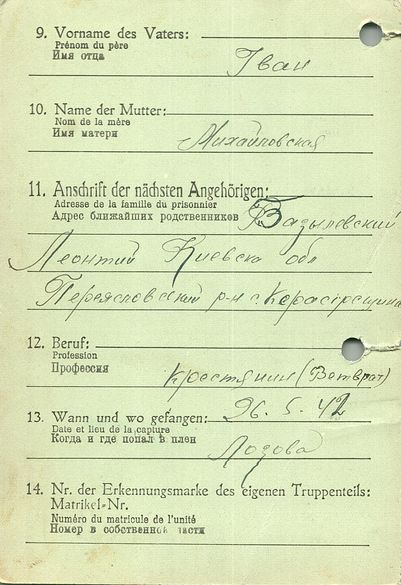 9. Vorname des Vaters:
Prénom du père
Имя отца
Іван
10. Name der Mutter:
Nom de la mère
Имя матери
Михайловская
11. Anschrift der nächsten Angehörigen:
Adresse de la famille du prisonnier
Адрес ближайших родственников Базылевский
Леонтий Киевска обл
Переясловский р-н с.
12. Beruf:
Profession
Профессия
крестянин (Ветврат)
13. Wann und wo gefangen: 26. 5. 42
Date et lieu de la capture
Когда и где попал в плен
Лозова
14. Nr. der Erkennungsmarke des eigenen Truppenteils:
Matrikel-Nr.
Numéro du matricule de l'unité
Номер в собственной части